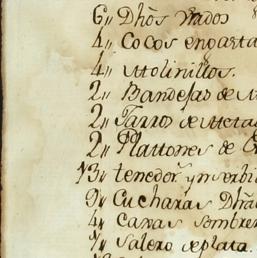 6,, Dhõs vzados
4,, Cocos engarta
4,, Molinillos.
2,, Bandejas de
2,, Tarros de Meta
2,, Plattones de
13,, tenedor.s ynserbi
9,, Cucharas Dhãs
4,, Caxas Sombrer
7,, Salero deplata.